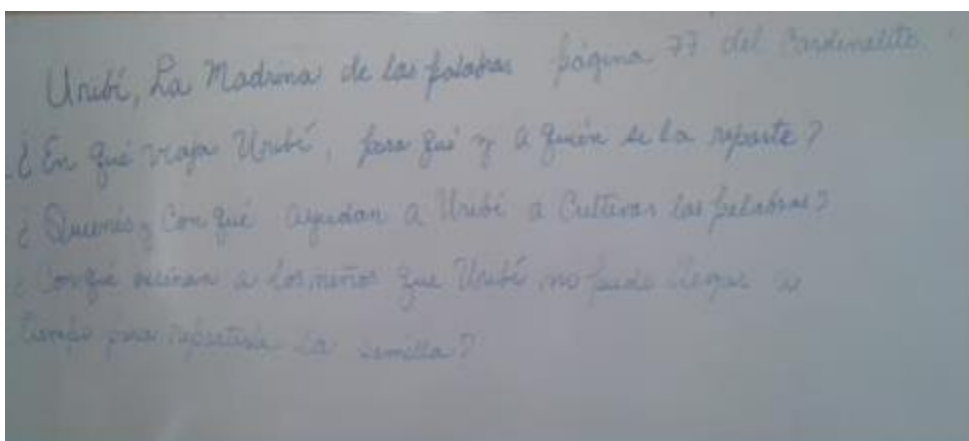 Uribí, La Madrina de las palabras página 77 del Cardenalito.
¿En qué viaja Uribí, para qué y a quién se la reparte?
¿Quienes y Con qué ayudan a Uribí a Cultivar las palabras?
¿Con qué a los niños que Uribí no pudo llegar a
tiempo para repartirle la semilla?